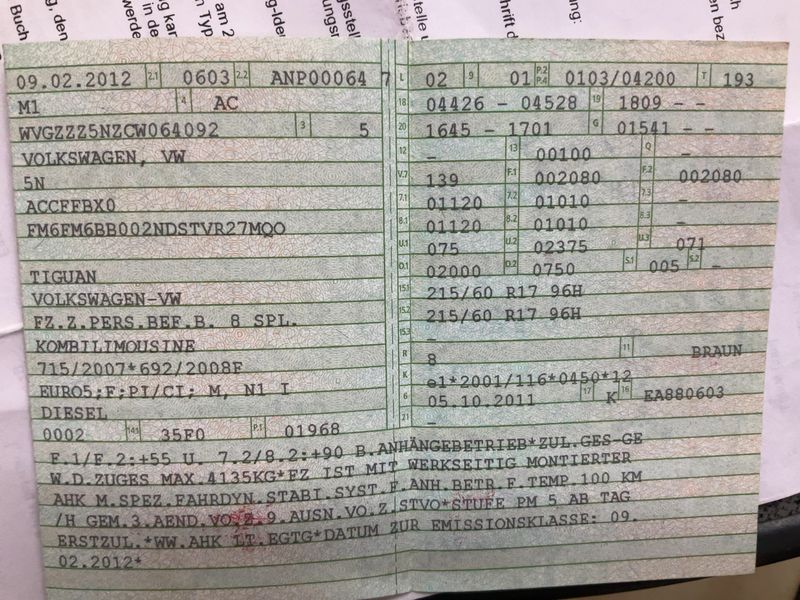 09.02.2012 2.1 0603 2.2 ANP00064 7
M1 4 AC
WVGZZZ5NZCW064092 3 5
VOLKSWAGEN, VW
5N
ACCFFBX0
FM6FM6BB002NDSTVR27MQO
TIGUAN
VOLKSWAGEN-VW
FZ.Z.PERS.BEF.B. 8 SPL.
KOMBILIMOUSINE
715/2007*692/2008F
EURO5;F;PI/CI; M, N1 I
DIESEL
0002 14.1 35F0 P.1 01968
L 02 9 01 P.2 P.4 0103/04200 T 193
18 04426 - 04528 19 1809 - -
20 1645 - 1701 G 01541 - -
12 - 13 00100 Q -
V.7 139 F.1 002080 F.2 002080
7.1 01120 7.2 01010 7.3 -
8.1 01120 8.2 01010 8.3 -
U.1 075 U.2 02375 U.3 071
O.1 02000 O.2 0750 S.1 005 S.2 -
15.1 215/60 R17 96H
15.2 215/60 R17 96H
15.3 -
R 8 11 BRAUN
K e1*2001/116*0450*12
6 05.10.2011 17 K 16 EA880603
21 -
F.1/F.2:+55 U. 7.2/8.2:+90 B.ANHÄNGEBETRIEB*ZUL.GES-GE
W.D.ZUGES MAX.4135KG*FZ IST MIT WERKSEITIG MONTIERTER
AHK M.SPEZ.FAHRDYN.STABI.SYST.F.ANH.BETR.F.TEMP.100 KM
/H GEM.3.AEND.VO.Z.9.AUSN.VO.Z.STVO*STUFE PM 5 AB TAG
ERSTZUL.*WW.AHK LT.EGTG*DATUM ZUR EMISSIONSKLASSE: 09.
02.2012*